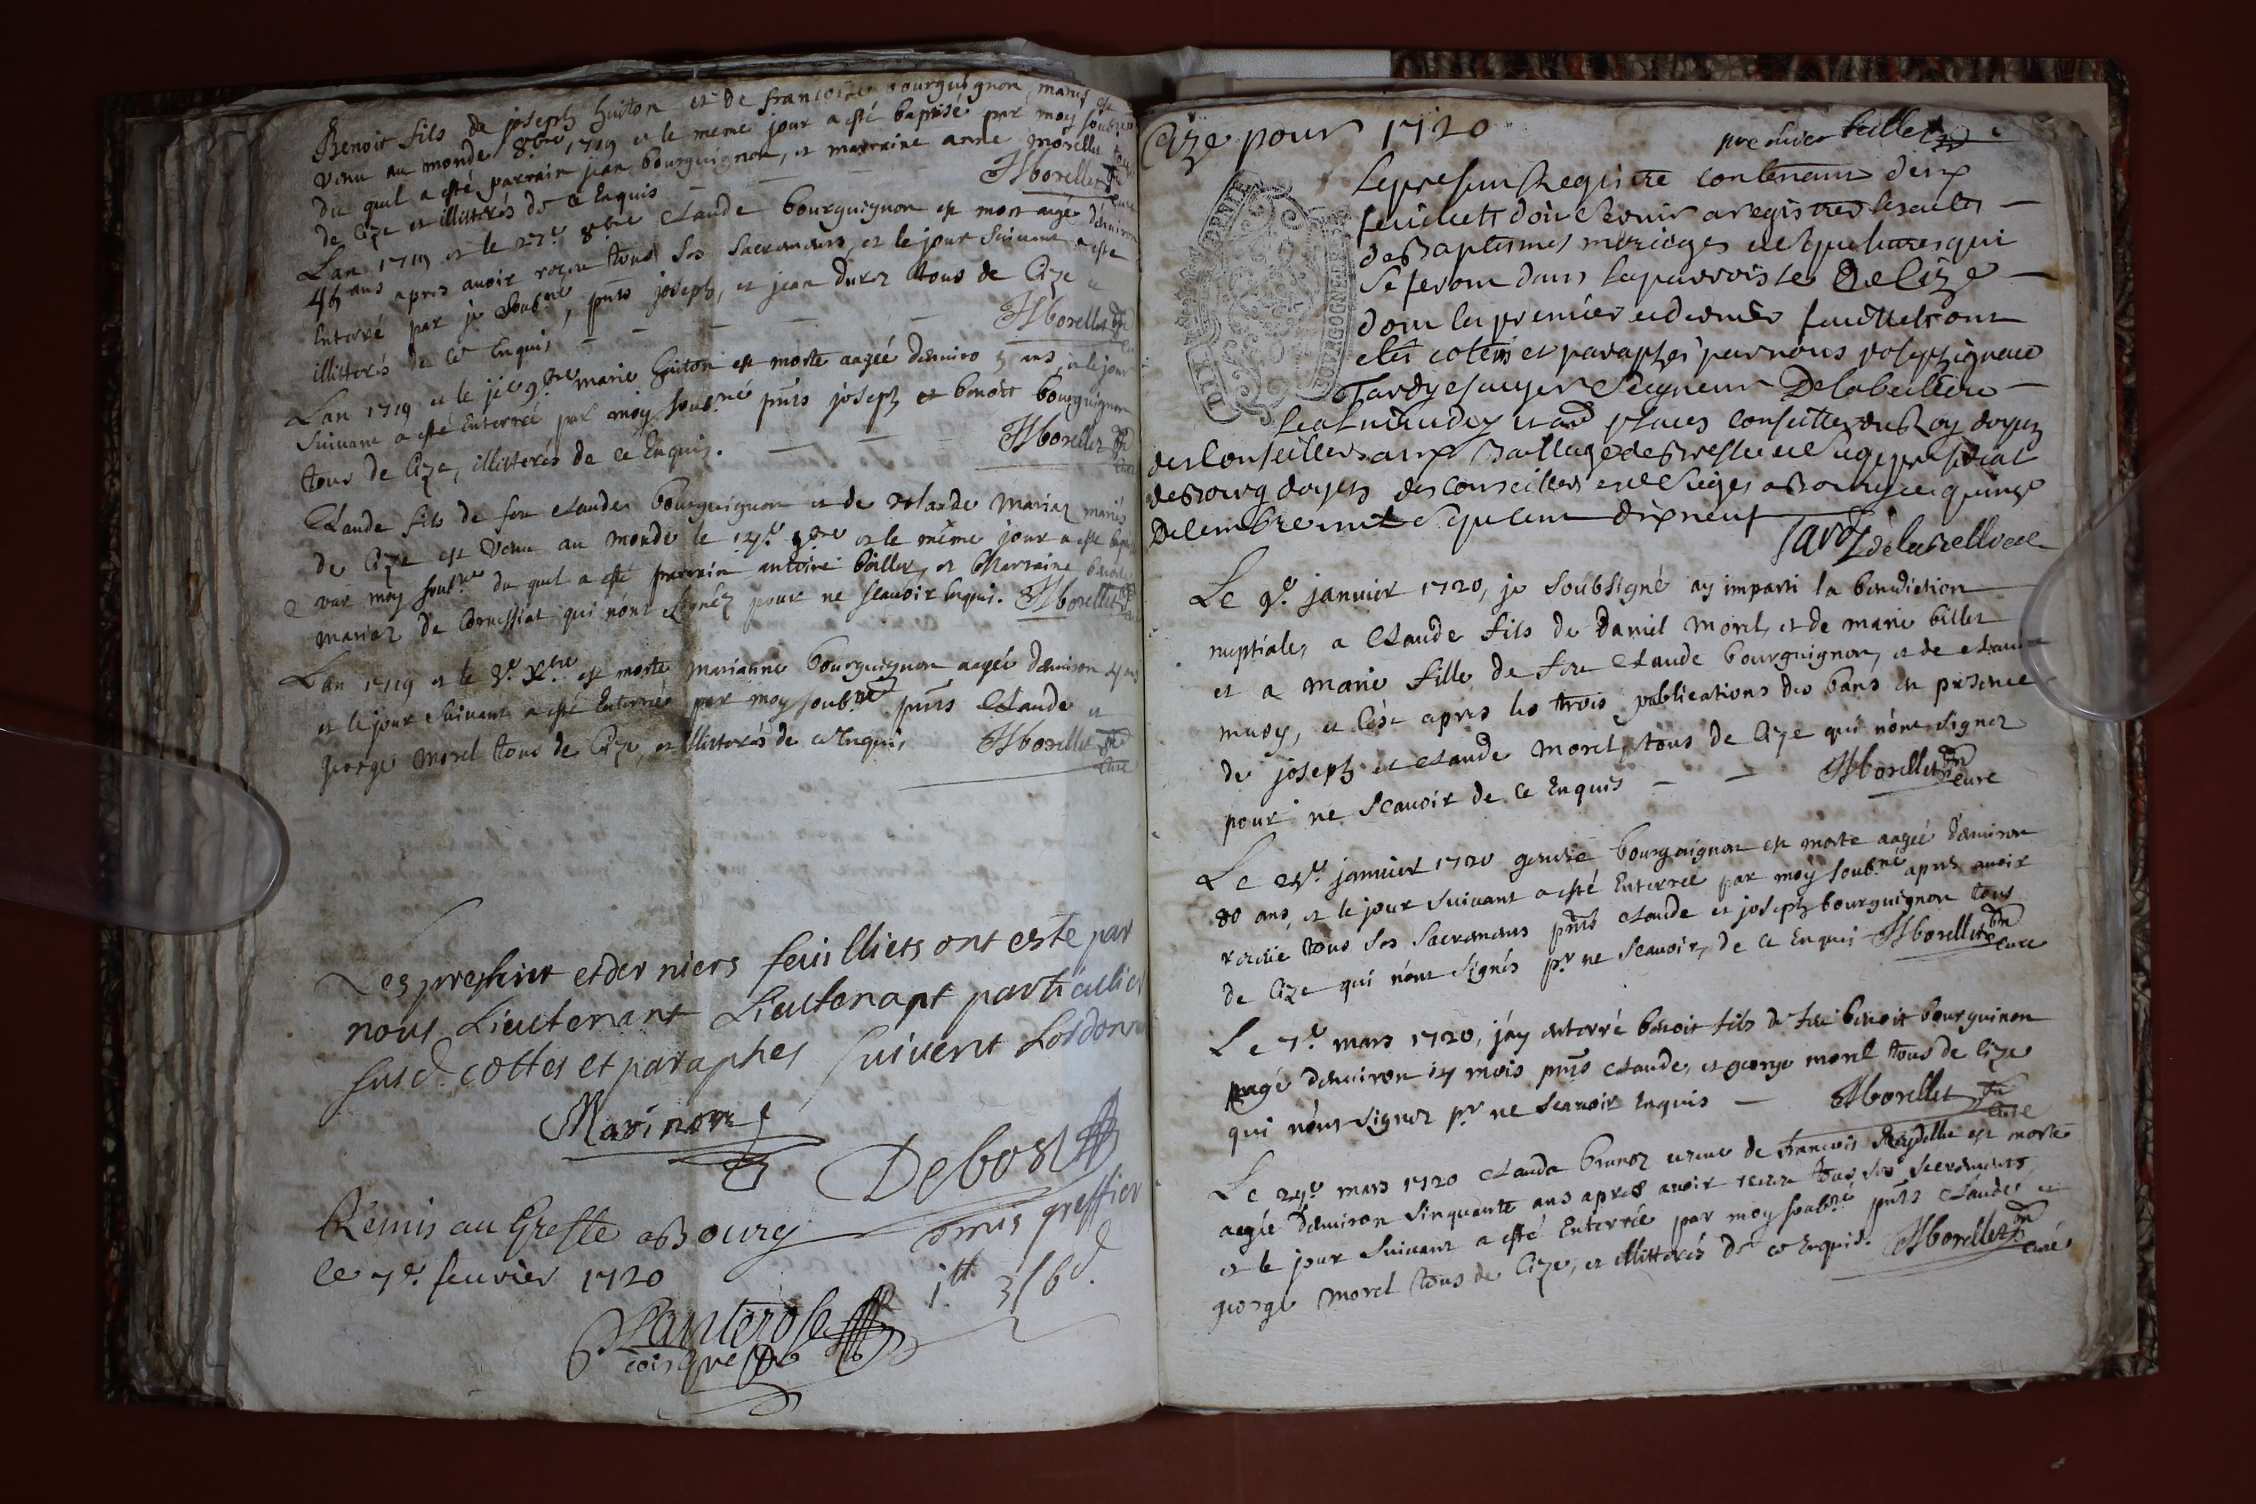 Benoit fils de joseph huiton et de francoise bourguignon mariés est
venu au monde 8bre 1719 et le meme jour a esté baptisé par moy soubné
du quel a esté parrain jean bourguignon, et marraine anne morellet tous
de Cize et illitterés de ce Enquis
HBorellet
curé
Lan 1719 et le 27e 8bre Claude bourguignon est mort aagé d'environ
45 ans apres avoir reçeu tous ses Sacremens, et le jour Suivant a esté
Enterré par je soubné, pnts joseph, et jean durez tous de Cize et
illitterés de ce Enquis
HBorellet
Lan 1719 et le 9bre marie huiton est morte aagéé denviro 3 ans, et le jour
Suivant a esté Enterréé par moy soubné pnts joseph et benoitt bourguignon
tous de Cize, illitterés de ce Enquis.
HBorellet
curé
Claude fils de feu Claude bourguignon et de Mariez mariés
de Cize est venu au monde le 14e 9bre et le même jour a esté baptisé
par moy soubné du quel a esté parrain antoine billet, et Marraine
mariez de Corvessiat qui n'ont signéz pour ne scavoir Enquis. HBorellet
Lan 1719 et le 3e Xbre est morte Marianne bourguignon aagéé d'environ 4 ans
et le jour Suivant a esté Enterréé par moy soubné pnts Claude et
george Morel tous de Cize, et illitterés de ce Enquis
HBorellet
curé
Les premier et derniers feuilliets ont esté par
nous Lieutenant Lieutenant particullier
susd. cottes et paraphes suivent Lordonn
Marinon
Debost
Remis au Greffe a Bourg
commis greffier
le 7e. fevrier 1720
1tt 3s 6d
Cize pour 1720
premier feuillet
Le present Registre contenant deux
feuillets doit Servir a registrer les actes
de Baptesmes mariages et Sepultures qui
Se feront dans la parroisse De Cize
dont les premier et dernier feuillets ont
etés cotéés et paraphés par nous
Tardy escuyer Seigneur De la belliere
et autres places conseiller du Roy doyen
des Conseillers aux Baillage de Bresse et Siege presidial
de Bourg doyen des conseillers esd Sieges a Bourg ce quinze
Decembre mil Sept cent dixneuf
Tardy de la belliere
Le 9e. janvier 1720, je soubsigné ay imparti la benediction
nuptiale, a Claude fils de Daniel Morel, et de marie billet
et a Marie fille de feu Claude bourguignon, et de Claudine
muoy, et c'est apres les trois publications des bans en presence
de joseph et Claude Morel, tous de Cize qui n'ont signez
pour ne Scavoir de ce Enquis
HBorellet
curé
Le 25e. janvier 1720 bourguignon est morte aagéé d'environ
80 ans, et le jour suivant a esté Enterréé par moy soubné apres avoir
receue tous ses sacremens pnts claude et joseph bourguignon tous
de Cize qui n'ont signés pr ne scavoir, de ce Enquis HBorellet
curé
Le 7e. mars 1720, j'ay enterré benoit fils de feu benoit bourguinon
aagé d'environ 14 mois pnts claude, et george morel tous de Cize
qui n'ont signez pr ne scavoir Enquis
HBorellet
curé
Le 24e mars 1720 Clauda brunez veuve de francois Reydellet est morte
aagéé d'environ Sinquante ans apres avoir receue tous ses sacremens,
et le jour suivant a esté Enterréé par moy soubné pnts Claude et
george Morel tous de Cize, et illitterés de ce Enquis. HBorellet
curé